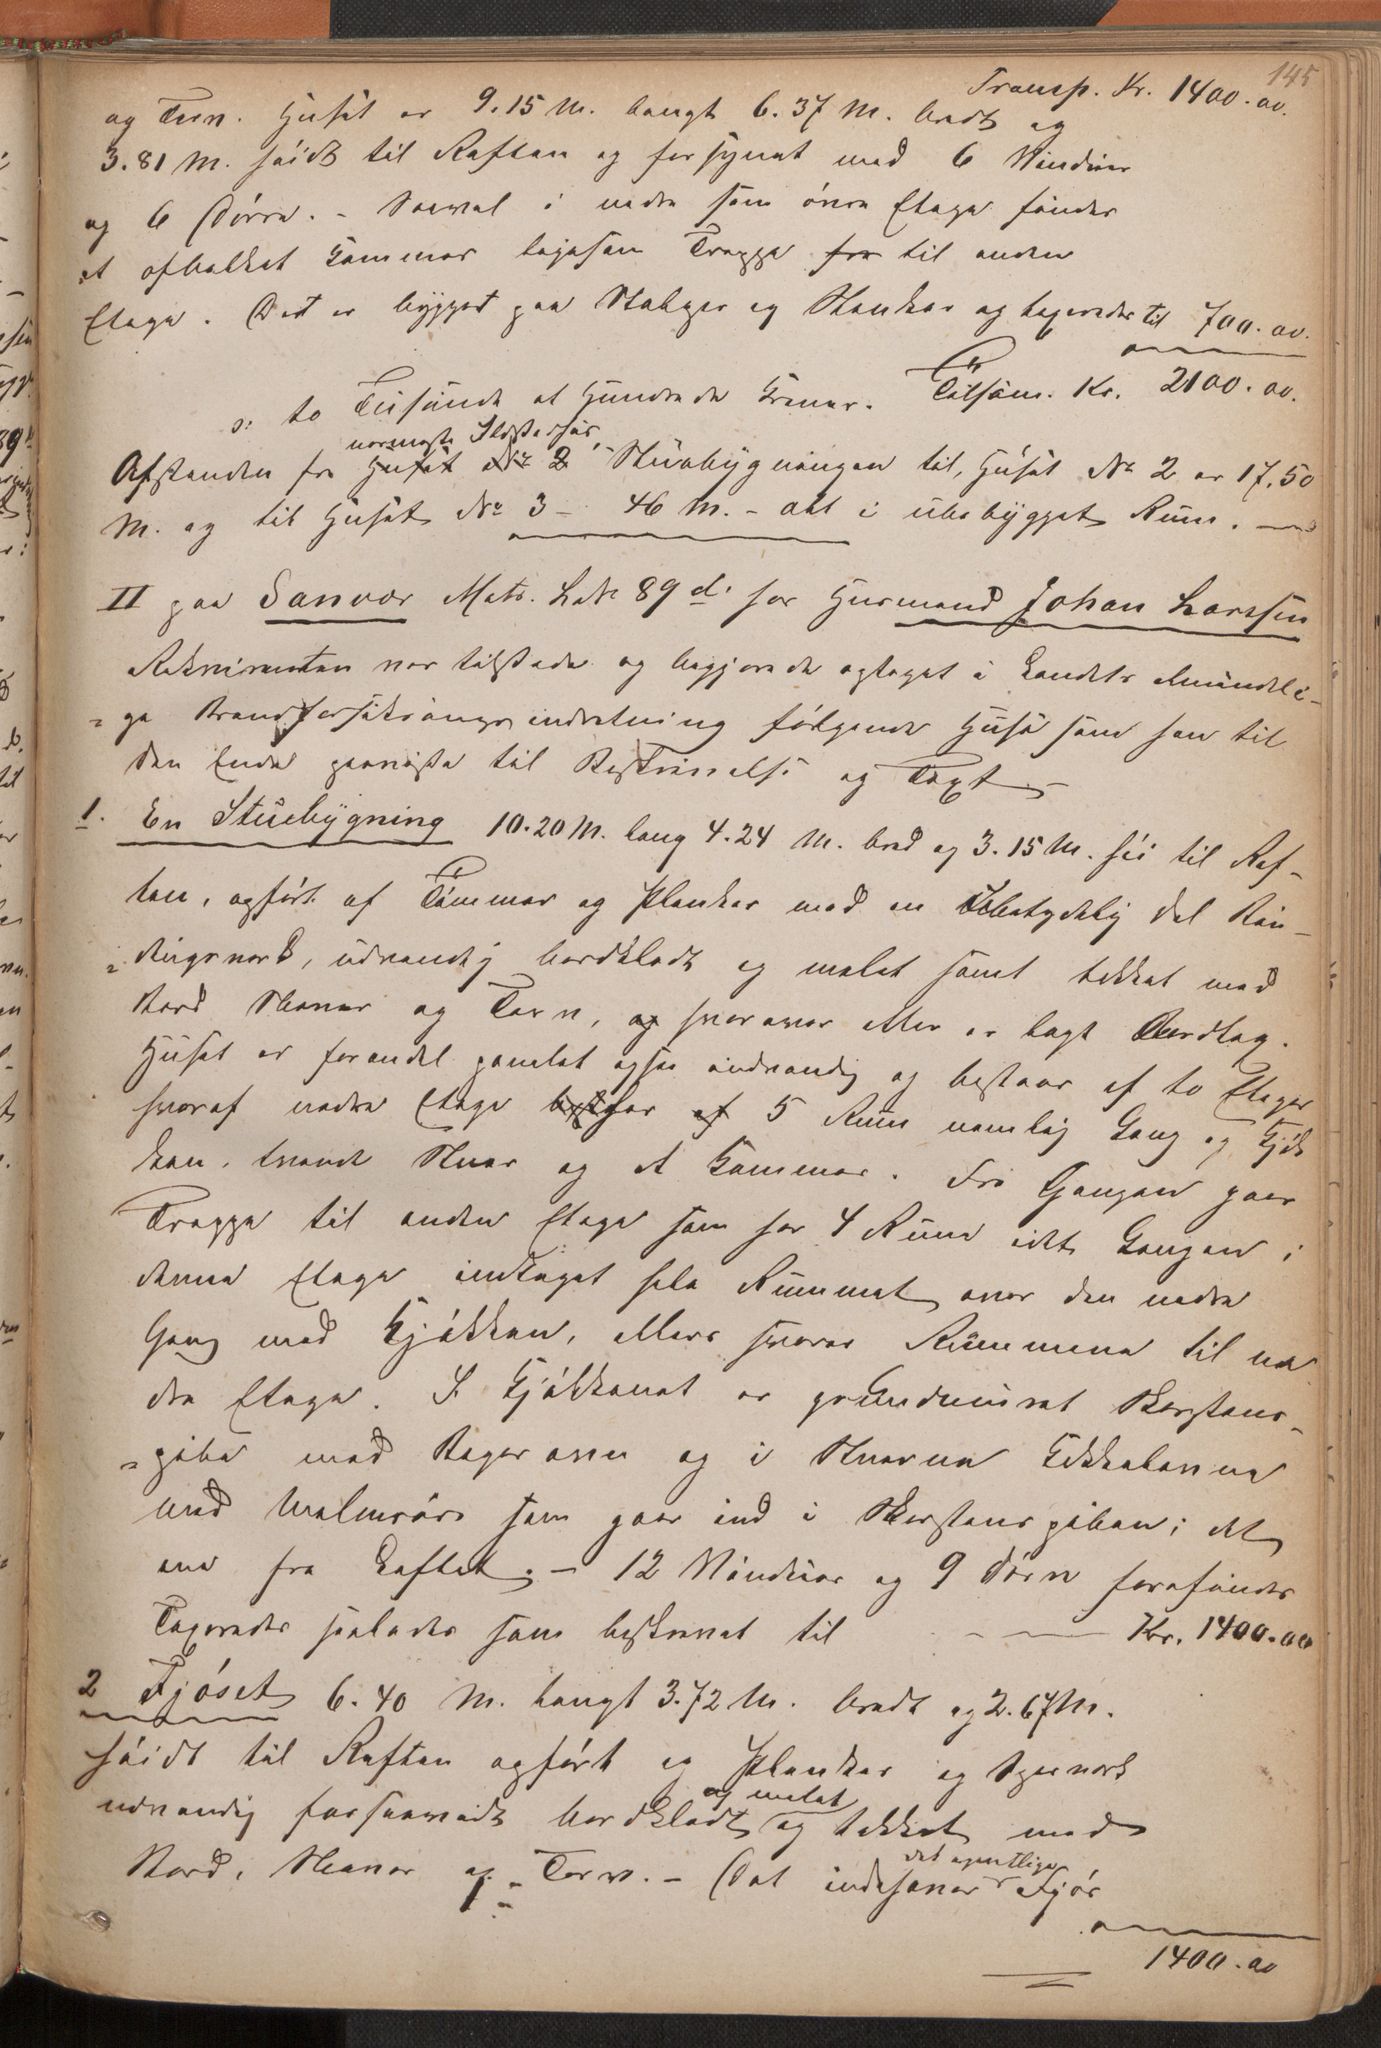 145
Transp. Kr. 1400.00.
og Torv. Huset er 9.15 M. langt 6.37 M. bredt og
3.81 M. høidt til Raften og forsynet med 6 Vinduer
og 6 Dörre. – Saavel i nedre som övre Etage findes
et afbalket Kammer ligesom Trappe fra til anden
Etage. Det er bygget paa Stolper og Stenkar og taxeredes til 700.00.
Tilsam. Kr. 2100.00.
s: to Tusinde et Hundrede Kroner.
nærmeste Ildstedhus,
Afstanden fra Huset No 2 Stuebygningen til, Huset No 2 er 17,50
M. og til Huset No 3 – 46 M. – alt i ubebygget Rum. –
II paa Sanvær Matr. LNo 89 d. for Husmand Johan Larssen
Rekvirenten var tilstede og begjærede optaget i Landets Almindeli-
ge Brandforsikringsindretning følgende Huse som han til
den Ende paaviste til Beskrivelse og Taxt –
1. En Stuebygning 10.20 M. lang 4.24 M. bred og 3.15 M. høi til Raf-
ten, opført af Tömmer og Planker med en Ubetydelig Del Bin-
dingsverk, udvendig bordklædt og malet samt tekket med
Bord Næver og Torv, og hvorover atter er lagt Bordtag.
Huset er forendel panelet ogsaa indvendig og bestaar af to Etager
hvoraf nedre Etage best har af 5 Rum nemlig Gang og Kjøk
ken, tvende Stuer og et Kammer. Fra Gangen gaar
Trappe til anden Etage som har 4 Rum idet Gangen i
denne Etage indtaget hele Rummet over den nedre
Gang med Kjøkken, ellers svarer Rummene til ne
dre Etage. I Kjøkkenet er grundmuret Skorstens-
pibe med Bagerovn og i Stuerne Kakkelovne
med Malmrör som gaar ind i Skorstenspiben; det
ene fra Loftet. – 12 Vinduer og 9 Döre forefindes
Taxeredes saaledes som beskrevet til – – Kr. 1400.00
2 Fjöset 6.40 M. langt 3.72 M. bredt og 2.67 M.
høidt til Raften opført og Planker og Sperverk
udvendig forsaavidt bordklædt og tekket med
og malet
Bord, Næver og Torv. – Det indeholder Fjös
det egentlige
1400.00